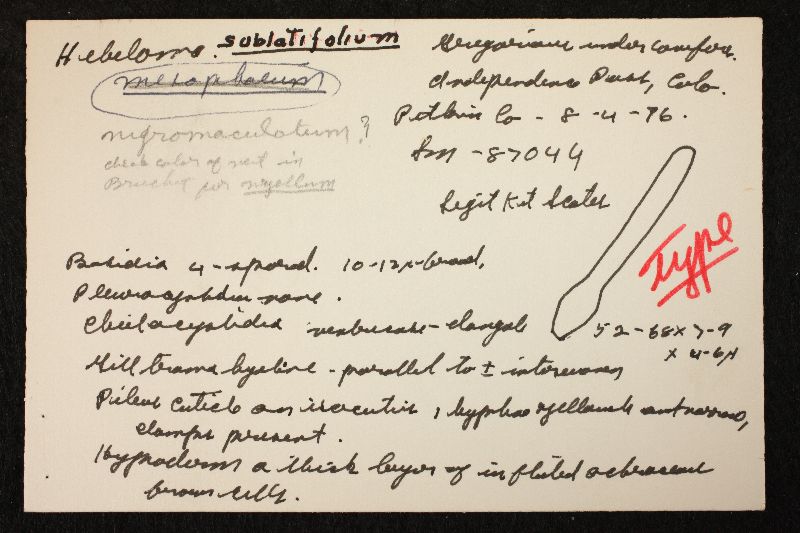 Hebeloma. sublatifolium
mesophaeum
nigromaculatum?
check color of veil in
Bruchet for
Gregarious under conifers.
Independence Pass, Colo.
Pitkin Co - 8 - 4 - 76.
Sm - 87044
Legit Kit Scates
Type
Basidia 4-spored. 10-12µ broad,
Pleurocystidia none.
Cheilocystidia ventricose-elongate 52-68 x 7-9
x 4-6µ
Gill trama hyaline - parallel to ± interwoven
Pileus cuticle an ixocutis, hyphae yellowish and narrow,
clamps present.
Hypoderm a thick layer of inflated ochraceous
brown cells.